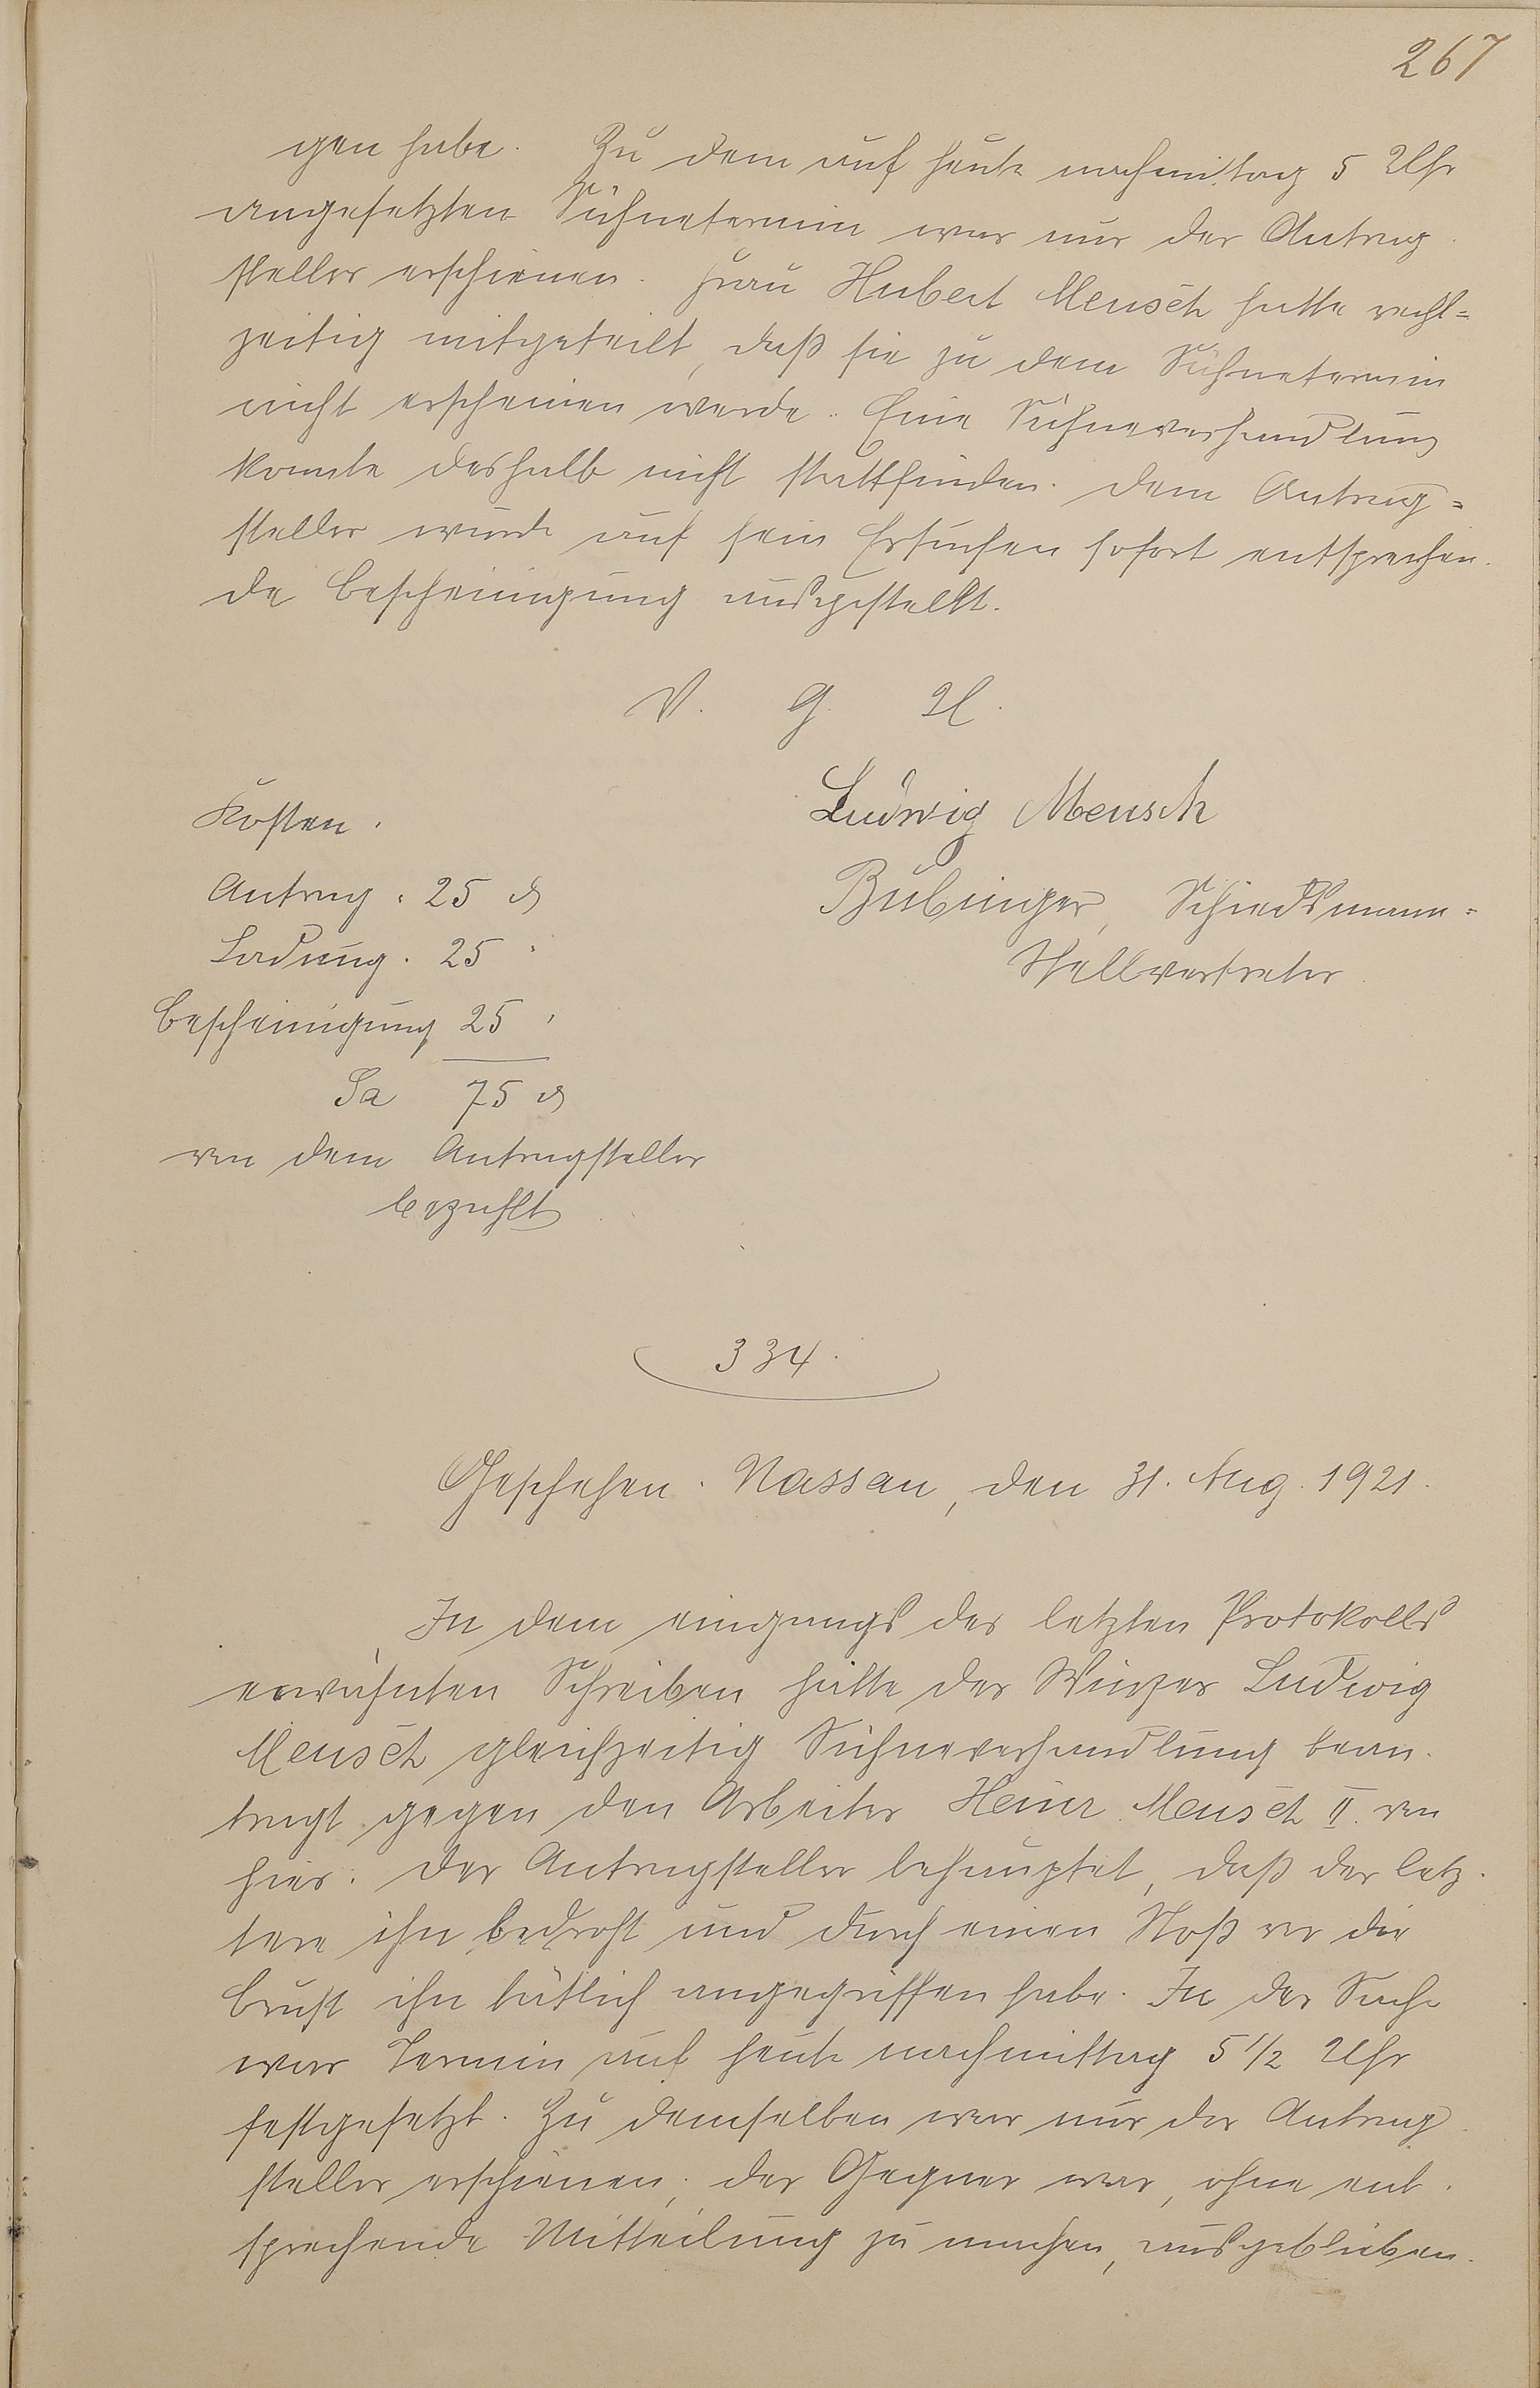 267
gen habe. Zu dem auf heute nachmittag 5 Uhr
angesetzten Sühnetermin war nur der Antrag-
steller erschienen. Frau Hubert Meusch hatte recht-
zeitig mitgeteilt, daß sie zu dem Sühnetermin
nicht erscheinen werde. Eine Sühneverhandlung
konnte deshalb nicht stattfinden. Dem Antrag-
steller wurde auf sein Ersuchen sofort entsprechen-
de Bescheinigung ausgestellt.
V. G. U.
Ludwig Meusch
Bubinger, Schiedsmann-
Stellvertreter
Kosten.
Antrag. 25 ₰
Ladung. 25 "
Bescheinigung 25 "
Sa 75 ₰
von dem Antragsteller
bezahlt
334.
Geschehen. Nassau, den 31. Aug. 1921.
In dem eingangs des letzten Protokolls
erwähnten Schreiben hatte der Winzer Ludwig
Meusch gleichzeitig Sühneverhandlung bean-
tragt gegen den Arbeiter Heinr. Meusch II. von
hier. Der Antragsteller behauptet, daß der letz-
tere ihn bedroht und durch einen Stoß vor die
Brust ihn tätlich angegriffen habe. In der Sache
war Termin auf heute nachmittag 5 1/2 Uhr
festgesetzt. Zu demselben war nur der Antrag-
steller erschienen, der Gegner war, ohne ent-
sprechende Mitteilung zu machen, ausgeblieben.